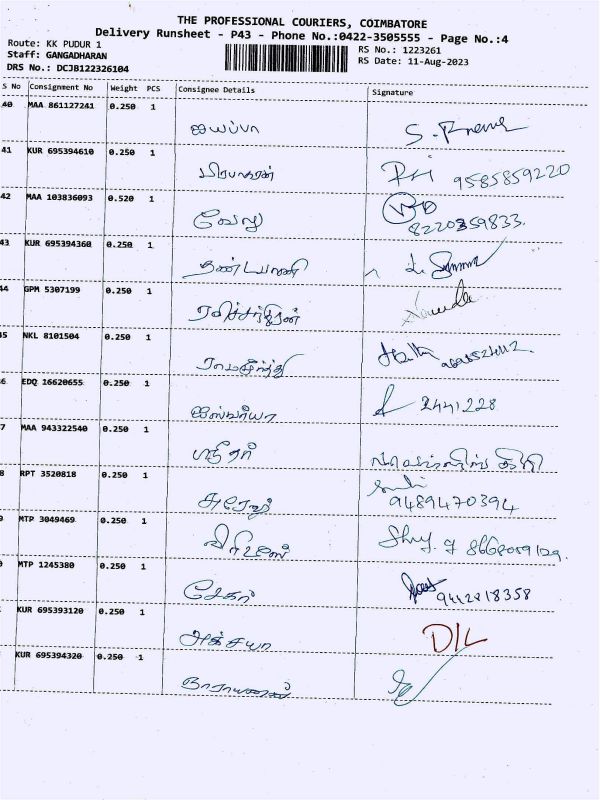 THE PROFESSIONAL COURIERS, COIMBATORE
Delivery Runsheet - P43 - Phone No.:0422-3505555 - Page No.:4
Route: KK PUDUR 1 RS No.: 1223261
Staff: GANGADHARAN RS Date: 11-Aug-2023
DRS No.: DCJB122326104
S No Consignment No Weight PCS Consignee Details Signature
40 MAA 861127241 0.250 1
ஐயப்பா
41 KUR 695394610 0.250 1
பிரபாகரன் 9585859220
42 MAA 103836093 0.520 1
வேலு 8220359833.
43 KUR 695394360 0.250 1
தண்டபாணி
44 GPM 5307199 0.250 1
ரவிச்சந்திரன்
45 NKL 8101504 0.250 1
ராமமூர்த்தி
6 EDQ 16620655 0.250 1
ஐஸ்வர்யா 2441228
7 MAA 943322540 0.250 1
ஸ்ரீதர்
8 RPT 3520818 0.250 1
சுரேஷ் 9489470394
9 MTP 3049469 0.250 1
MTP 1245380 0.250 1
சேகர் 9442818358
KUR 695393120 0.250 1
அக்சயா D/L
KUR 695394320 0.250 1
நாராயணன்